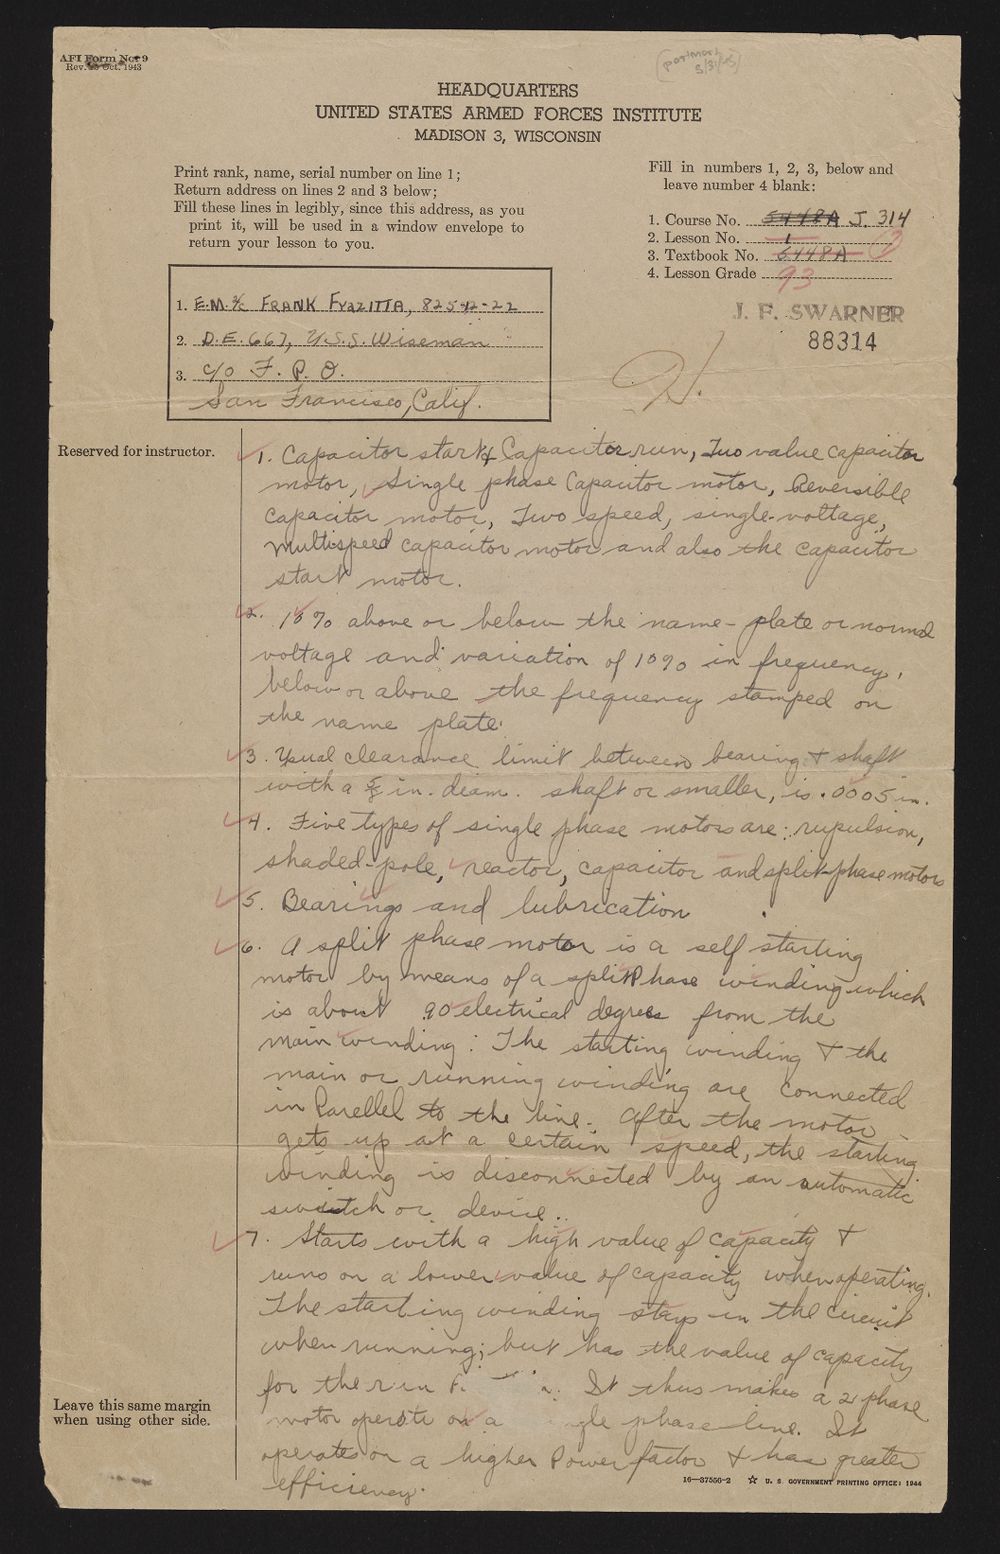 AFI Form No. 9
Rev. 25 Oct. 1943
(postmark
5/31/45)
HEADQUARTERS
UNITED STATES ARMED FORCES INSTITUTE
MADISON 3, WISCONSIN
Print rank, name, serial number on line 1;
Return address on lines 2 and 3 below;
Fill these lines in legibly, since this address, as you
print it, will be used in a window envelope to
return your lesson to you.
Fill in numbers 1, 2, 3, below and
leave number 4 blank:
1. Course No. 5448A J. 314
2. Lesson No. 1
3. Textbook No. 5448A
4. Lesson Grade 93
J. F. SWARNER
88314
1. E.M. 3/c FRANK FRAZITTA, 825-12-22
2. D.E. 667, U.S.S. Wiseman
3. c/o F. P. O.
San Francisco, Calif.
H.
Reserved for instructor.
1. Capacitor start & Capacitor run, Two value capacitor
motor, Single phase Capacitor motor, Reversible
Capacitor motor, Two speed, single-voltage,
multispeed capacitor motor and also the capacitor
start motor.
2. 10% above or below the name-plate or normal
voltage and variation of 10% in frequency,
below or above the frequency stamped on
the name plate.
3. Usual clearance limit between bearing & shaft
with a 5/8 in. diam. shaft or smaller, is .0005 in.
4. Five types of single phase motors are: rupulsion,
shaded-pole, reactor, capacitor and split-phase motors
5. Bearings and lubrication
6. A split phase motor is a self starting
motor by means of a split Phase winding which
is about 90 electrical degrees from the
main winding: The starting winding & the
main or running winding are connected
in Parellel to the line. After the motor
gets up at a certain speed, the starting
winding is disconnected by an automatic
switch or device.
7. Starts with a high value of capacity &
runs on a lower value of capacity when operating.
The starting winding stays in the circuit
when running; but has the value of capacity
for the run It thus makes a 2 phase
motor operate on a gle phase line. It
operates on a higher Power factor & has greater
efficiency.
Leave this same margin
when using other side.
16—37556-2 ☆ U. S. GOVERNMENT PRINTING OFFICE: 1944